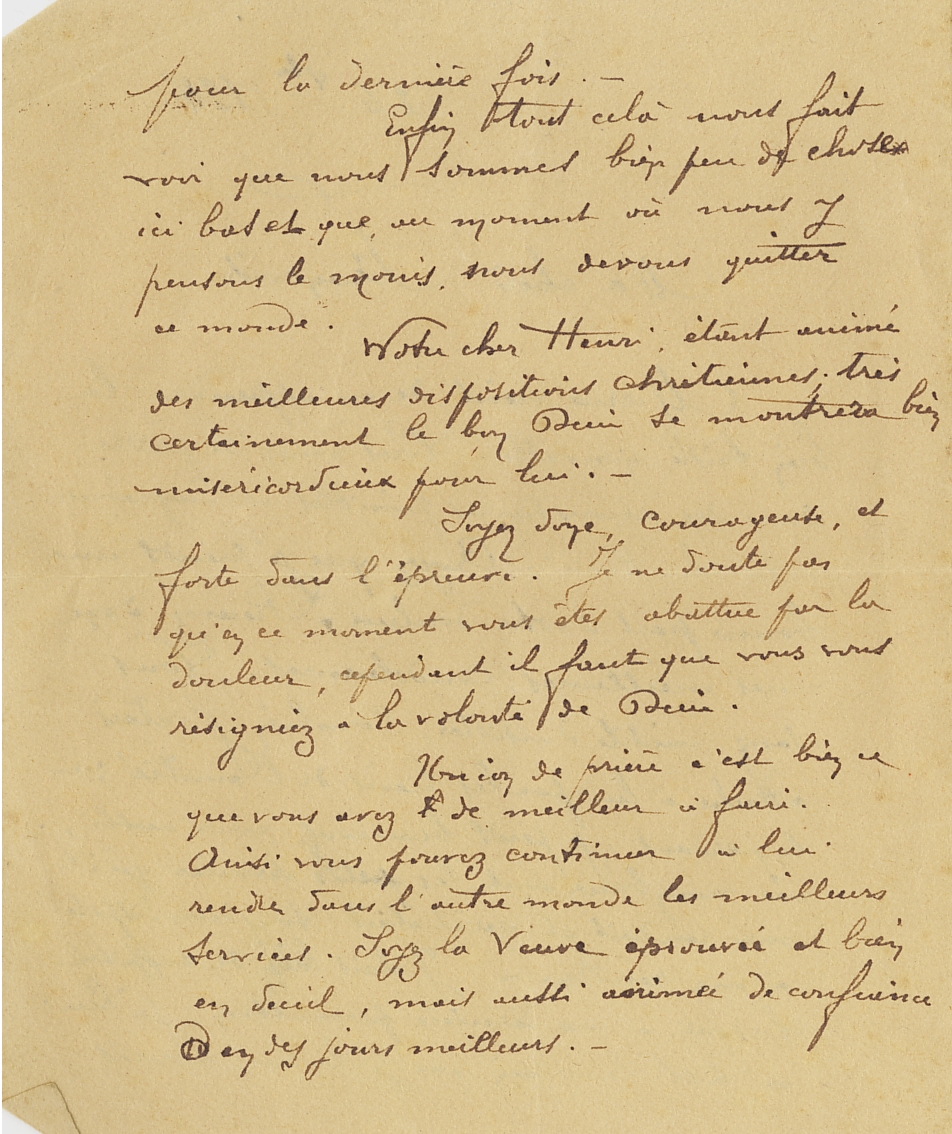 pour la dernière fois. –
Enfin tout celà nous fait
voir que nous sommes bien peu de chose
ici bas et que, au moment où nous y
pensons le moins, nous devons quitter
ce monde.
Votre cher Henri, étant animé
des meilleures dispositions chrétiennes, très
certainement le bon Dieu se montrera bien
miséricordieux pour lui. –
Soyez donc, courageuse, et
forte dans l'épreuve. Je ne doute pas
qu'en ce moment vous êtes abattue par la
douleur, cependant il faut que vous vous
résigniez à la volonté de Dieu.
Union de prière c'est bien ce
que vous avez de meilleur à faire.
Ainsi vous pouvez continuer à lui
rendre dans l'autre monde les meilleurs
services. Soyez la Veuve éprouvée et bien
en deuil, mais aussi animée de confiance
en des jours meilleurs. –